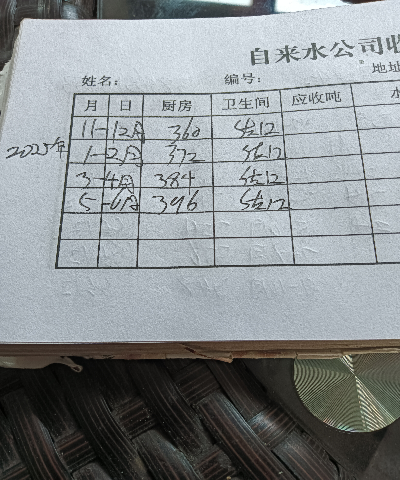 自来水公司收
姓名： 编号： 地址
月 日 厨房 卫生间 应收吨 水
11-12月 360
2025年 1-2月 372
3-4月 384
5-6月 396